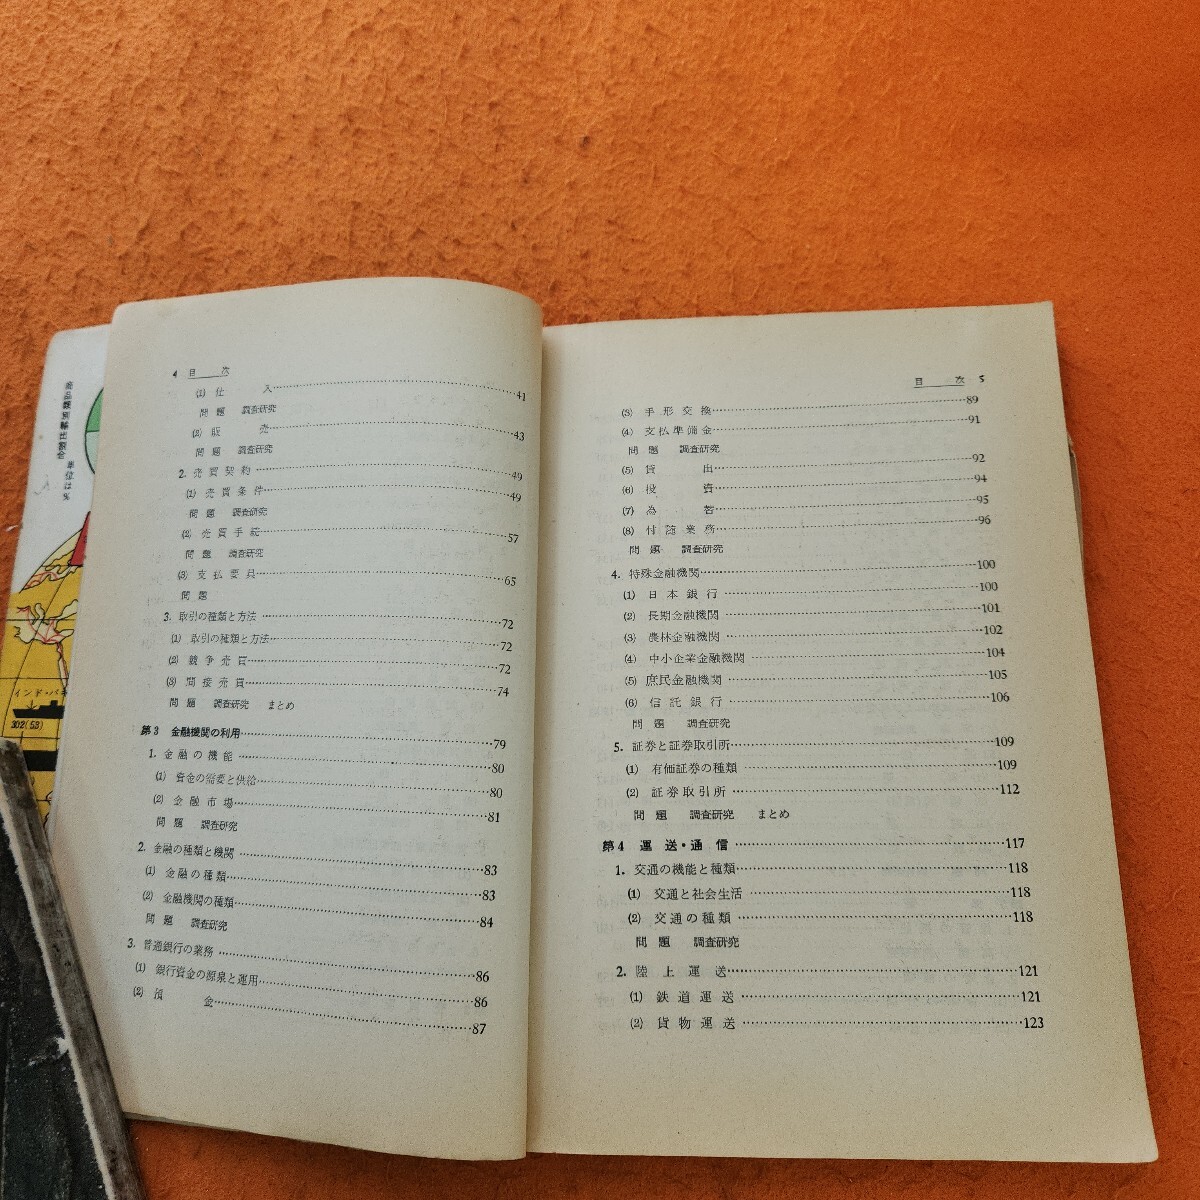 商品類別輸出額割合
単位は%
インド・パキ
302(53)
4 目 次
(1) 仕 入 41
問 題 調査研究
(2) 販 売 43
問 題 調査研究
2. 売買契約 49
(1) 売買条件 49
問 題 調査研究
(2) 売買手続 57
問 題 調査研究
(3) 支払要具 65
問 題
3. 取引の種類と方法 72
(1) 取引の種類と方法 72
(2) 競争売買 72
(3) 間接売買 74
問 題 調査研究 まとめ
第3 金融機関の利用 79
1. 金融の機能 80
(1) 資金の需要と供給 80
(2) 金融市場 81
問 題 調査研究
2. 金融の種類と機関 83
(1) 金融の種類 83
(2) 金融機関の種類 84
問 題 調査研究
3. 普通銀行の業務 86
(1) 銀行資金の源泉と運用 86
(2) 預 金 87
目 次 5
(3) 手形交換 89
(4) 支払準備金 91
問 題 調査研究
(5) 貸 出 92
(6) 投 資 94
(7) 為 替 95
(8) 付随業務 96
問 題 調査研究
4. 特殊金融機関 100
(1) 日本銀行 100
(2) 長期金融機関 101
(3) 農林金融機関 102
(4) 中小企業金融機関 104
(5) 庶民金融機関 105
(6) 信託銀行 106
問 題 調査研究
5. 証券と証券取引所 109
(1) 有価証券の種類 109
(2) 証券取引所 112
問 題 調査研究 まとめ
第4 運送・通信 117
1. 交通の機能と種類 118
(1) 交通と社会生活 118
(2) 交通の種類 118
問 題 調査研究
2. 陸上運送 121
(1) 鉄道運送 121
(2) 貨物運送 123